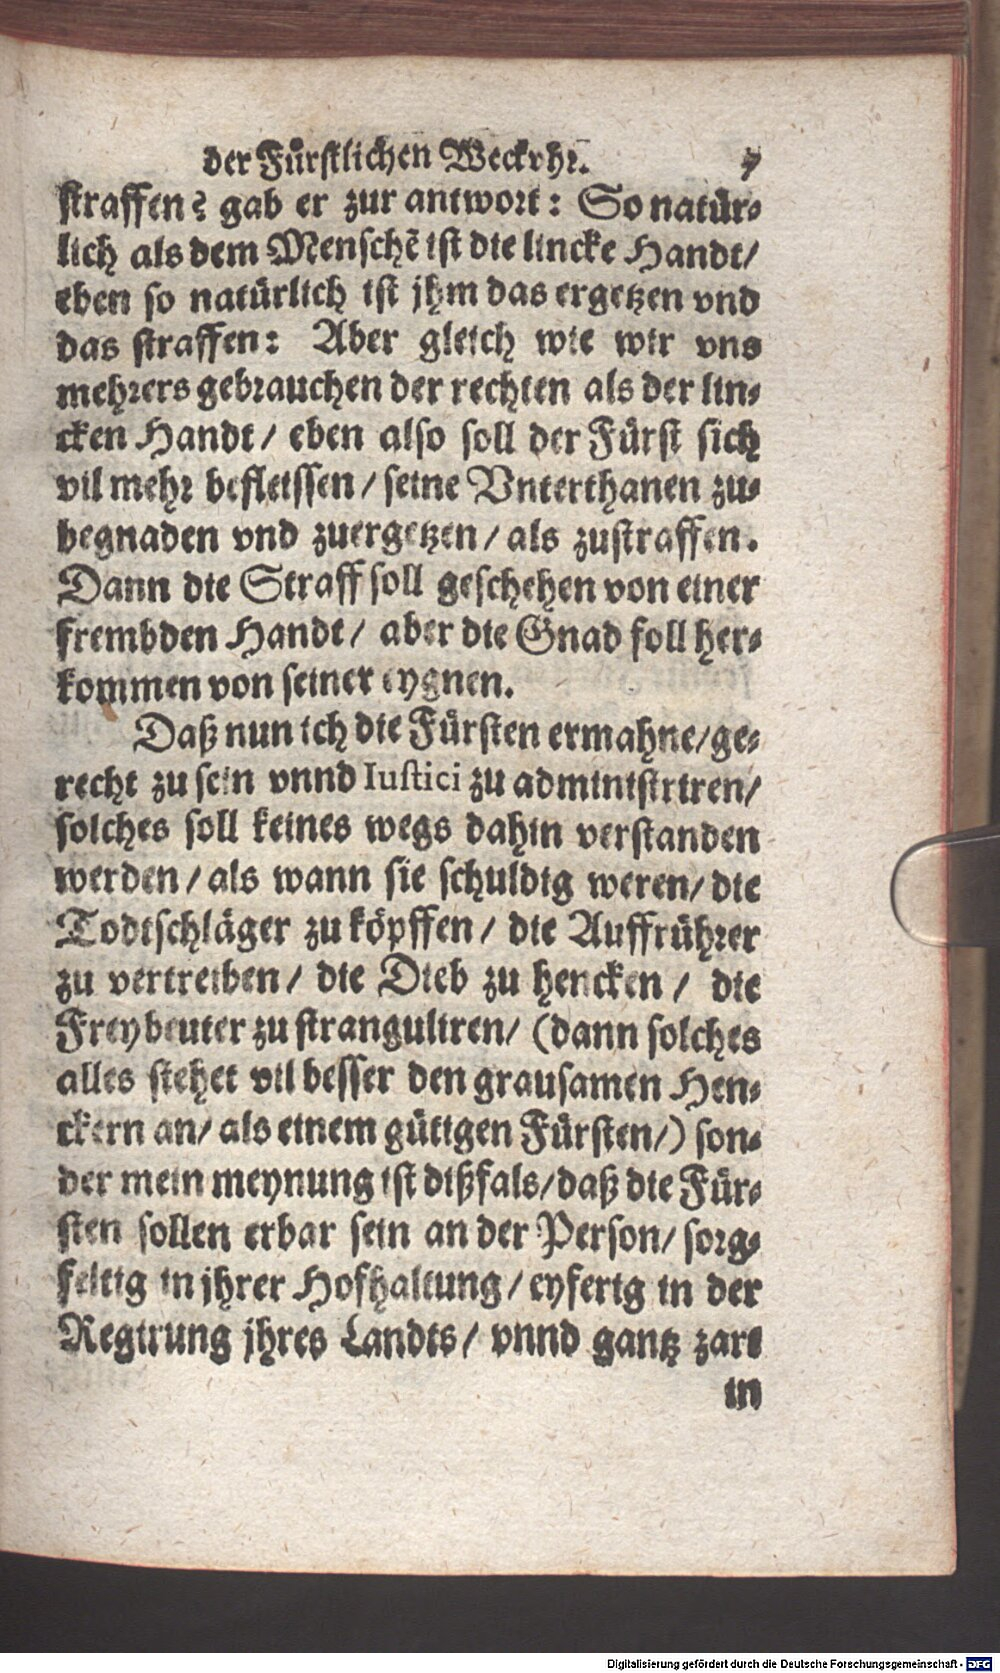 der Fürstlichen Weckvhr. 7
straffen? gab er zur antwort: So natür-
lich als dem Menschē ist die lincke Handt/
eben so natürlich ist jhm das ergetzen vnd
das straffen: Aber gleich wie wir vns
mehrers gebrauchen der rechten als der lin-
cken Handt/ eben also soll der Fürst sich
vil mehr befleissen/ seine Vnterthanen zu-
begnaden vnd zuergetzen/ als zustraffen.
Dann die Straff soll geschehen von einer
frembden Handt/ aber die Gnad soll her-
kommen von seiner eygnen.
Daß nun ich die Fürsten ermahne/ ge-
recht zu sein vnnd Iustici zu administriren/
solches soll keines wegs dahin verstanden
werden/ als wann sie schuldig weren/ die
Todtschläger zu köpffen/ die Auffrührer
zu vertreiben/ die Dieb zu hencken/ die
Freybeuter zu stranguliren/ (dann solches
alles stehet vil besser den grausamen Hen-
ckern an/ als einem gütigen Fürsten/) son-
der mein meynung ist dißfals/ daß die Für-
sten sollen erbar sein an der Person/ sorg-
feltig in jhrer Hofhaltung/ eyferig in der
Regirung jhres Landts/ vnnd gantz zart
in
Digitalisierung gefördert durch die Deutsche Forschungsgemeinschaft - DFG